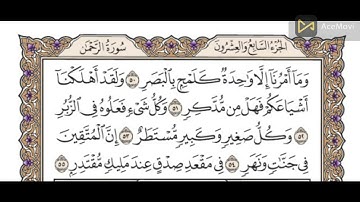 الجزء السابع والعشرون سورة الرحمن
AceMovi
وَمَآ أَمْرُنَآ إِلَّا وَٰحِدَةٌ كَلَمْحٍۭ بِٱلْبَصَرِ ٥٠ وَلَقَدْ أَهْلَكْنَآ
أَشْيَاعَكُمْ فَهَلْ مِن مُّدَّكِرٍ ٥١ وَكُلُّ شَىْءٍ فَعَلُوهُ فِى ٱلزُّبُرِ
٥٢ وَكُلُّ صَغِيرٍ وَكَبِيرٍ مُّسْتَطَرٌ ٥٣ إِنَّ ٱلْمُتَّقِينَ
فِى جَنَّٰتٍ وَنَهَرٍ ٥٤ فِى مَقْعَدِ صِدْقٍ عِندَ مَلِيكٍ مُّقْتَدِرٍۭ ٥٥